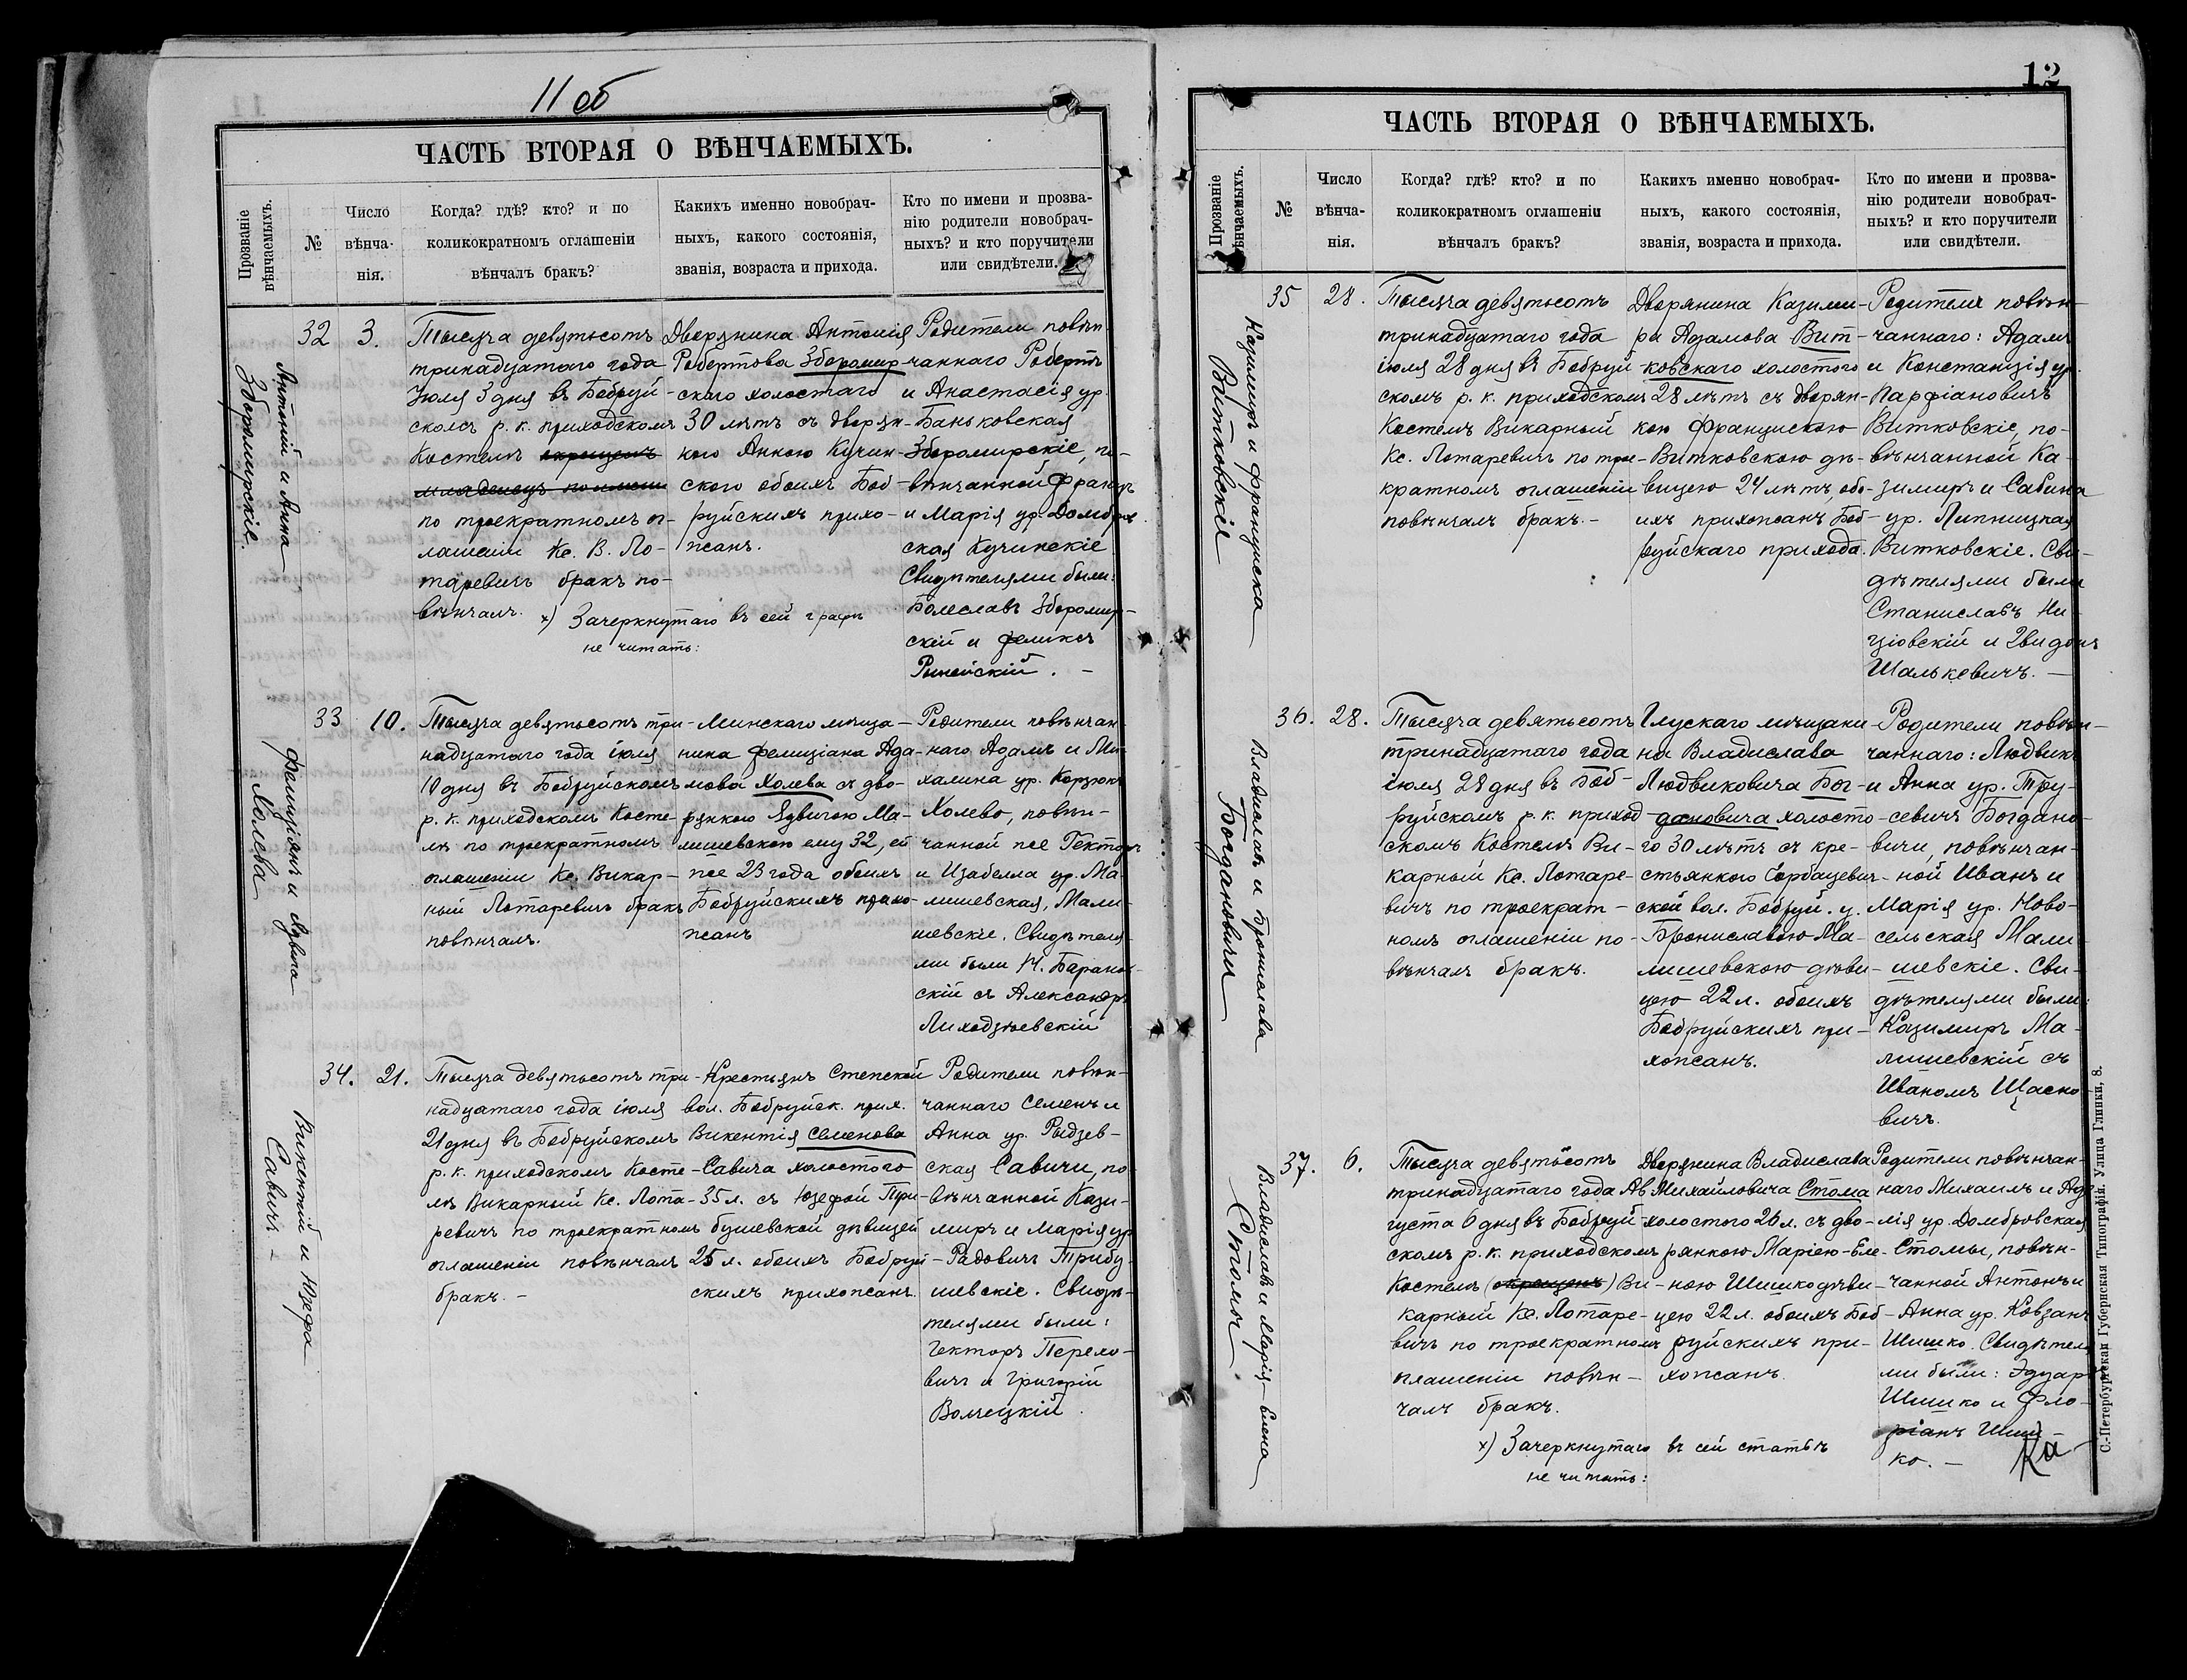 11 об
ЧАСТЬ ВТОРАЯ О ВѢНЧАЕМЫХЪ.
Прозваніе вѣнчаемыхъ.
№
Число вѣнча-
нія.
Когда? гдѣ? кто? и по
коликократномъ оглашеніи
вѣнчалъ бракъ?
Какихъ именно новобрач-
ныхъ, какого состоянія,
званія, возраста и прихода.
Кто по имени и прозва-
нію родители новобрач-
ныхъ? и кто поручители
или свидѣтели.
Антоній и Анна
Зборомирскіе.
32
3.
Тысяча девятьсотъ
тринадцатаго года
Іюля 3 дня въ Бобруй-
скомъ р. к. приходскомъ
Костелѣ окрещенъ
младенецъ по имени
по троекратномъ ог-
лашеніи Кс. В. Ло-
таревичъ бракъ по-
вѣнчалъ.
х) Зачеркнутаго въ сей графѣ
не читать:
Дворянина Антонія
Робертова Зборомир-
скаго холостаго
30 лѣтъ съ дворян-
кою Анною Кучин-
ского обоихъ Боб-
руйскихъ прихо-
жанъ.
Родители повѣн-
чаннаго Робертъ
и Анастасія ур.
Баньковская
Зборомирскіе, по-
вѣнчанной Францъ
и Марія ур. Домбров
ская Кучинскіе
Свидѣтелями были:
Болеславъ Зборомир-
скій и Феликсъ
Фелиціянъ и Ядвига
Холева
33
10.
Тысяча девятьсотъ три-
надцатаго года іюля
10 дня въ Бобруйскомъ
р. к. приходскомъ Косте-
лѣ по троекратномъ
оглашеніи Кс. Викар-
ный Лотаревичъ бракъ
повѣнчалъ.
Минскаго мѣща-
нина Фелиціана Ада-
мова Холева съ дво-
рянкою Ядвигою Ма-
лишевскою ему 32, ей
же 23 года обоихъ
Бобруйскихъ прихо-
жанъ
Родители повѣнчан-
наго Адамъ и Ми-
халина ур. Корзюкъ
Холево, повѣн-
чанной же Гекторъ
и Изабелла ур. Ма-
лишевская, Мали-
шевскіе. Свидѣтеля-
ми были М. Баранов-
скій съ Александръ
Лиходзѣевскій
Викентій и Юзефа
Савичъ -
34.
21.
Тысяча девятьсотъ три-
надцатаго года іюля
21 дня въ Бобруйскомъ
р. к. приходскомъ Косте-
лѣ Викарный Кс. Лота-
ревичъ по троекратномъ
оглашеніи повѣнчалъ
бракъ. -
Крестьянъ Степской
вол. Бобруйск. прих.
Викентія Семенова
Савича холостого
35 л. съ Юзефой Три-
бушевской дѣвицей
25 л. обоихъ Бобруй-
скихъ прихожанъ.
Родители повѣн-
чаннаго Семенъ и
Анна ур. Рыдзев-
ская Савичи, по-
вѣнчанной Кази-
миръ и Марія ур
Радовичъ Трибу-
шевскіе. Свидѣ-
телями были:
Гекторъ Перехо-
вичъ и Григорій
12
ЧАСТЬ ВТОРАЯ О ВѢНЧАЕМЫХЪ.
Прозваніе вѣнчаемыхъ.
№
Число
вѣнча-
нія.
Когда? гдѣ? кто? и по
коликократномъ оглашеніи
вѣнчалъ бракъ?
Какихъ именно новобрач-
ныхъ, какого состоянія,
званія, возраста и прихода.
Кто по имени и прозва-
нію родители новобрач-
ныхъ? и кто поручители
или свидѣтели.
Казимиръ и Францишка
Витковскіе
35
28.
Тысяча девятьсотъ
тринадцатаго года
іюля 28 дня въ Бобруй-
скомъ р. к. приходскомъ
Костелѣ Викарный
Кс. Лотаревичъ по трое-
кратномъ оглашеніи
повѣнчалъ бракъ. -
Дворянина Казими-
ра Адамова Вит-
ковскаго холостого
28 лѣтъ съ дворян-
кою Францискою
Витковскою дѣ-
вицею 24 лѣтъ, обо-
ихъ прихожанъ Боб-
руйскаго прихода.
Родители повѣн-
чаннаго: Адамъ
и Констанція ур.
Парфіановичъ
Витковскіе, по-
вѣнчанной Ка-
зимиръ и Сабина
ур. Липницкая
Витковскіе. Сви-
дѣтелями были
Станиславъ Ни-
ціовскій и Гвидонъ
Шалькевичъ. -
Владиславъ и Брониславa
Богдановичи
36.
28.
Тысяча девятьсотъ
тринадцатаго года
іюля 28 дня въ Боб-
руйскомъ р. к. приход-
скомъ Костелѣ Ви-
карный Кс. Лотаре-
вичъ по троекрат-
номъ оглашеніи по-
вѣнчалъ бракъ.
Глускаго мѣщани-
на Владислава
Людвиковича Бог-
дановича холосто-
го 30 лѣтъ съ кре-
стьянкою Горбацевич-
ской вол. Бобруй. у.
Брониславою Ма-
лишевскою дѣви-
цею 22 л. обоихъ
Бобруйскихъ при-
хожанъ.
Родители повѣн-
чаннаго: Людвикъ
и Анна ур. Тру-
севичъ Богдано-
вичи, повѣнчан-
ной Иванъ и
Марія ур. Ново-
сельская Мали-
шевскіе. Сви-
дѣтелями были:
Казимиръ Ма-
лишевскій съ
Иваномъ Щасно-
вичъ.
Владиславъ и Марія-Елена
Стомы
37.
6.
Тысяча девятьсотъ
тринадцатаго года Ав
густа 6 дня въ Бобруй-
скомъ р. к. приходскомъ
Костелѣ (окрещенъ) Ви-
карный Кс. Лотаре-
вичъ по троекратномъ
оглашеніи повѣн-
чалъ бракъ.
х) Зачеркнутаго въ сей статьѣ
не читать:
Дворянина Владислава
Михайловича Стома
холостого 26 л. съ дво-
рянкою Маріею-Еле-
ною Шишко дѣви-
цею 22 л. обоихъ Боб-
руйскихъ при-
хожанъ.
Родители повѣнчан-
наго Михаилъ и Аде
лія ур. Домбровская
Стомы, повѣн-
чанной Антонъ и
Анна ур. Ковзанъ
Шишко. Свидѣтеля
ми были: Эдуардъ
Шишко и Фло-
ріанъ Шиш-
ко. -
С.-Петербургская Губернская Типографія. Улица Глинки, 8.